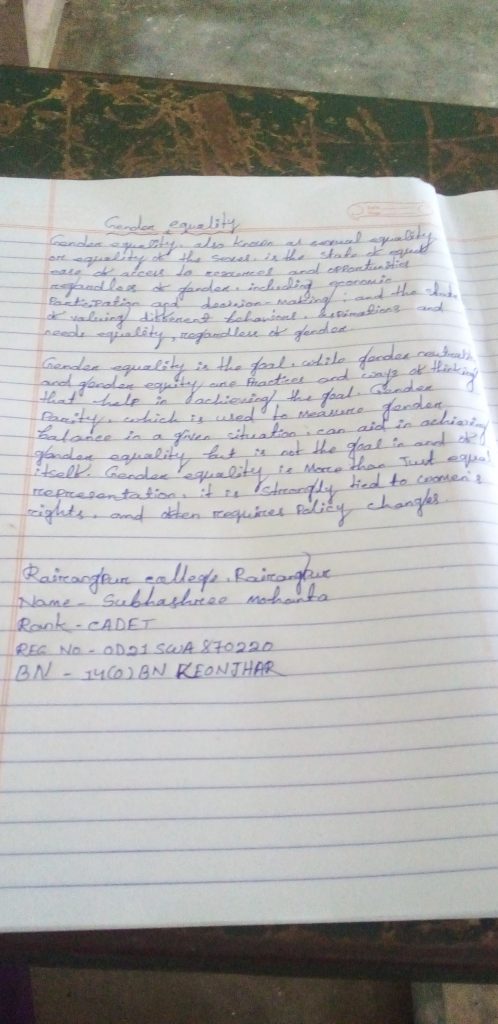 Gender equality
Gender equality, also known as sexual equality
or equality of the sexes, is the state of equal
ease of access to resources and opportunities
regardless of gender, including economic
Participation and decision-making; and the state
of valuing different behaviors, aspirations and
needs equality, regardless of gender
Gender equality is the goal, while gender neutrality
and gender equity are Practices and ways of thinking
that help in achieving the goal. Gender
Parity, which is used to measure gender
balance in a given situation, can aid in achieving
gender equality but is not the goal in and of
itself. Gender equality is More than Just equal
representation, it is strongly tied to women's
rights, and often requires Policy changes
Rairangpur college, Rairangpur
Name - Subhashree Mohanta
Rank - CADET
REG NO - OD21 SWA 870220
BN - 14(O) BN KEONJHAR